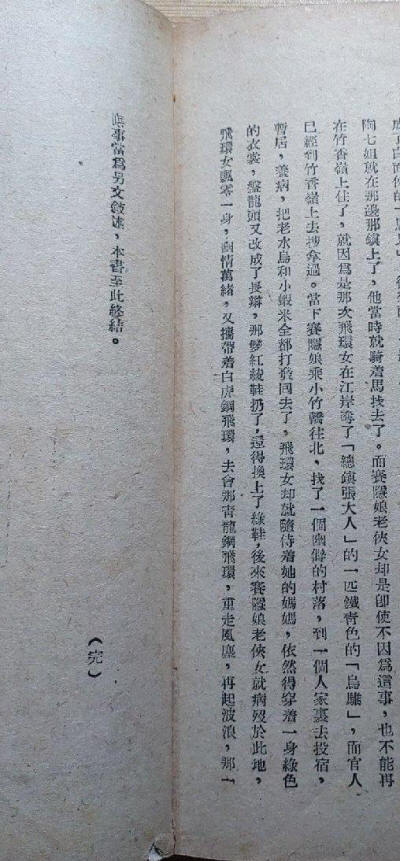 陶七姐就在那邊那鎮上了，他當時就騎着馬找去了。而賽隱娘老俠女却是卽使不因爲這事，也不能再
在竹香嶺上住了，就因爲是那次飛環女在江岸奪了「總鎮張大人」的一匹鐵青色的「烏騅」，而官人
已經到竹香嶺上去搜拿過。當下賽隱娘乘小竹轎往北，找了一個幽僻的村落，到一個人家裏去投宿，
暫居，養病，把老水鳥和小蝦米全都打發回去了，飛環女却就隨侍着她的媽媽，依然得穿着一身綠色
的衣裳，盤龍頭又改成了長辮，那雙紅綾鞋扔了，還得換上了綠鞋，後來賽隱娘老俠女就病歿於此地，
飛環女飄零一身，幽情萬緒，又攜帶着白虎鋼飛環，去會那靑龍鋼飛環，重走風塵，再起波浪，那一
與事當爲另文敘述，本書至此終結。
（完）